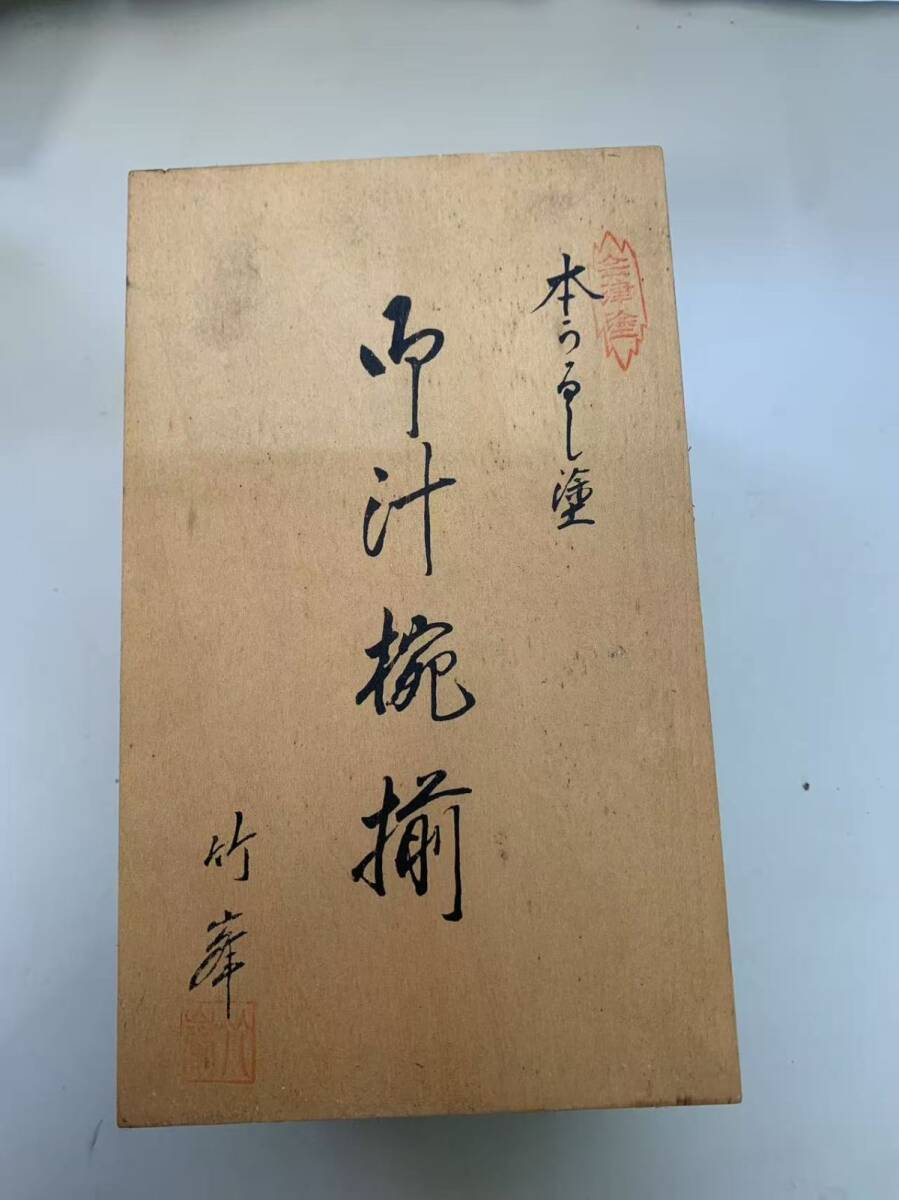 会津塗
本うるし塗
御汁椀揃
竹峯